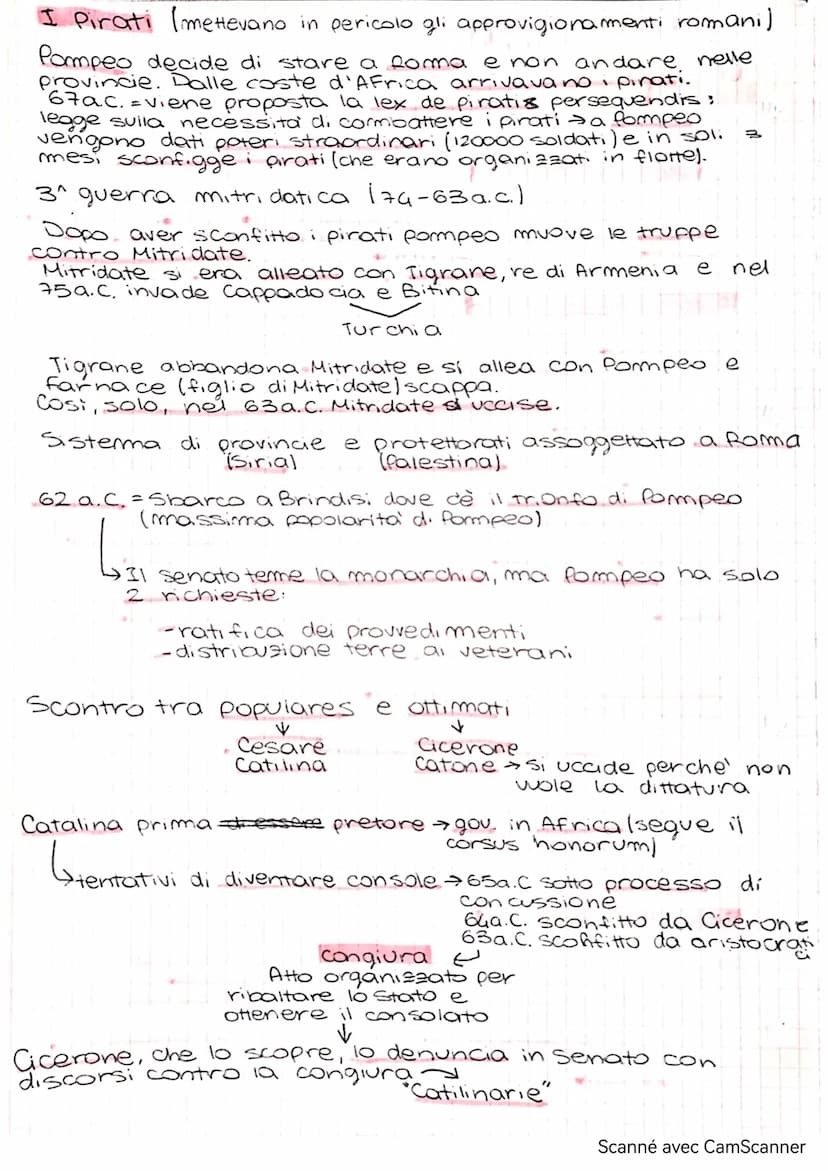 I Pirati (mettevano in pericolo gli approvigionamenti romani)
Pompeo decide di stare a Roma e non andare nelle
provincie. Dalle coste d'Africa arrivavano i pirati.
67a.C. = viene proposta la lex de piratis persequendis:
legge sulla necessità di combattere i pirati → a Pompeo
vengono dati poteri straordinari (120000 soldati) e in soli 3
mesi sconfigge i pirati (che erano organizzati in flotte).
3^ guerra mitridatica (74-63a.C.)
Dopo aver sconfitto i pirati Pompeo muove le truppe
contro Mitridate.
Mitridate si era alleato con Tigrane, re di Armenia e nel
75a.C. invade Cappadocia e Bitina
Turchia
Tigrane abbandona Mitridate e si allea con Pompeo e
Farnace (figlio di Mitridate) scappa.
Così, solo, nel 63a.C. Mitridate si uccise.
Sistema di provincie e protettorati assoggettato a Roma
(Siria) (Palestina)
62 a.C. = Sbarco a Brindisi dove c'è il Trionfo di Pompeo
(massima popolarità di Pompeo)
↳ Il senato teme la monarchia, ma Pompeo ha solo
2 richieste:
-ratifica dei provvedimenti
-distribuzione terre ai veterani
Scontro tra populares e ottimati
↓ ↓
Cesare Cicerone
Catilina Catone → si uccide perché non
vuole la dittatura
Catalina prima di essere pretore → gov. in Africa (segue il
corsus honorum)
↳ tentativi di diventare console → 65a.C sotto processo di
concussione
64a.C. sconfitto da Cicerone
63a.C. sconfitto da aristocratici
congiura ↵
Atto organizzato per
ribaltare lo Stato e
ottenere il consolato
↓
Cicerone, che lo scopre, lo denuncia in Senato con
discorsi contro la congiura →
"Catilinarie"
Scanné avec CamScanner